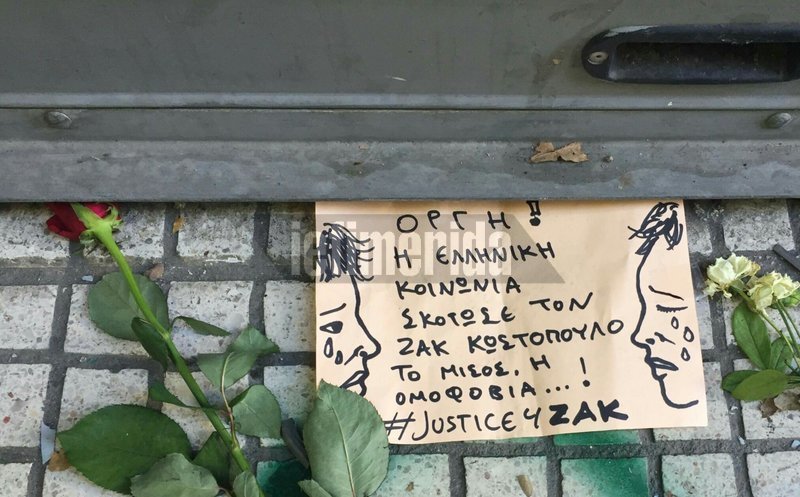 ΟΡΓΗ!
iefimerida
Η ΕΛΛΗΝΙΚΗ
ΚΟΙΝΩΝΙΑ
ΣΚΟΤΩΣΕ ΤΟΝ
ΖΑΚ ΚΩΣΤΟΠΟΥΛΟ
ΤΟ ΜΙΣΟΣ, Η
ΟΜΟΦΟΒΙΑ...!
#JUSTICE4ZAK